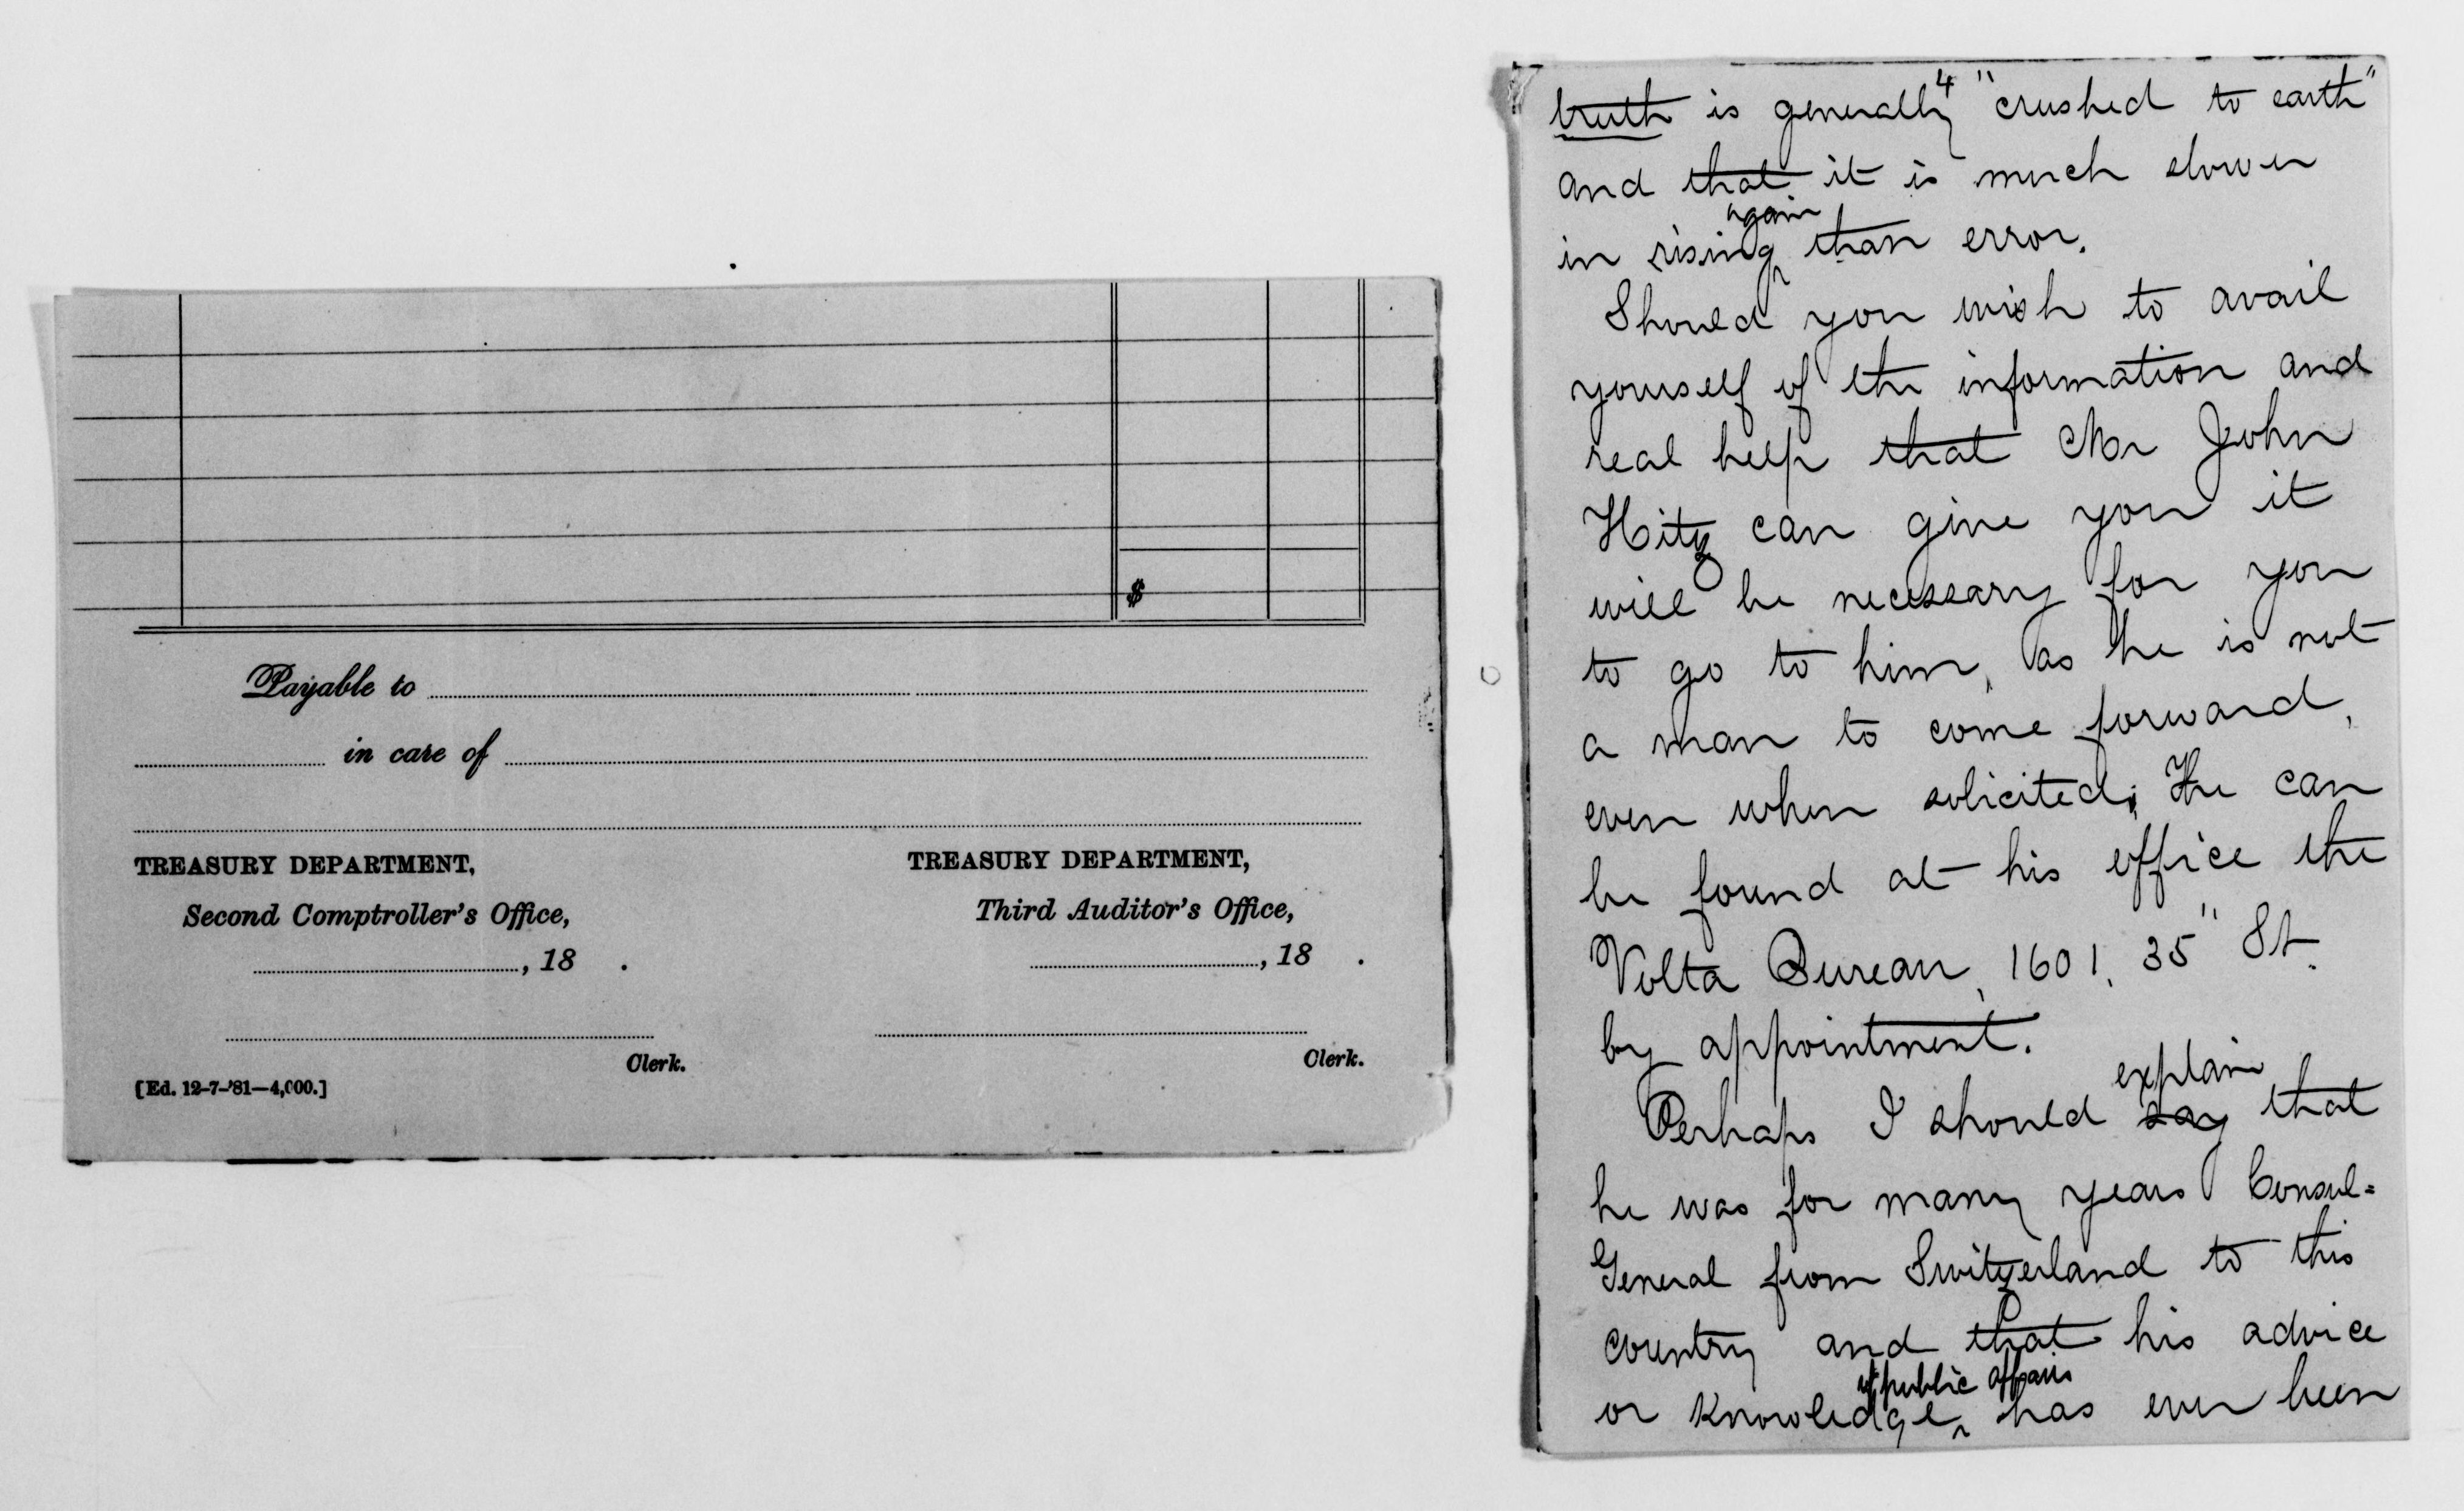 $
Payable to
in care of
TREASURY DEPARTMENT,
Second Comptroller's Office,
, 18 .
Clerk.
[Ed. 12-7-'81—4,000.]
TREASURY DEPARTMENT,
Third Auditor's Office,
, 18 .
Clerk.
4
truth is generally "crushed to earth"
and that it is much slower
again
in rising ^ than error.
Should you wish to avail
yourself of the information and
real help that Mr John
Hitz can give you it
will be necessary for you
to go to him, as he is not
a man to come forward,
even when solicited; He can
be found at his office the
Volta Bureau, 1601, 35" St.
by appointment.
explain
Perhaps I should say that
he was for many years Consul=
General from Switzerland to this
country and that his advice
of public affairs
or knowledge ^ has ever been